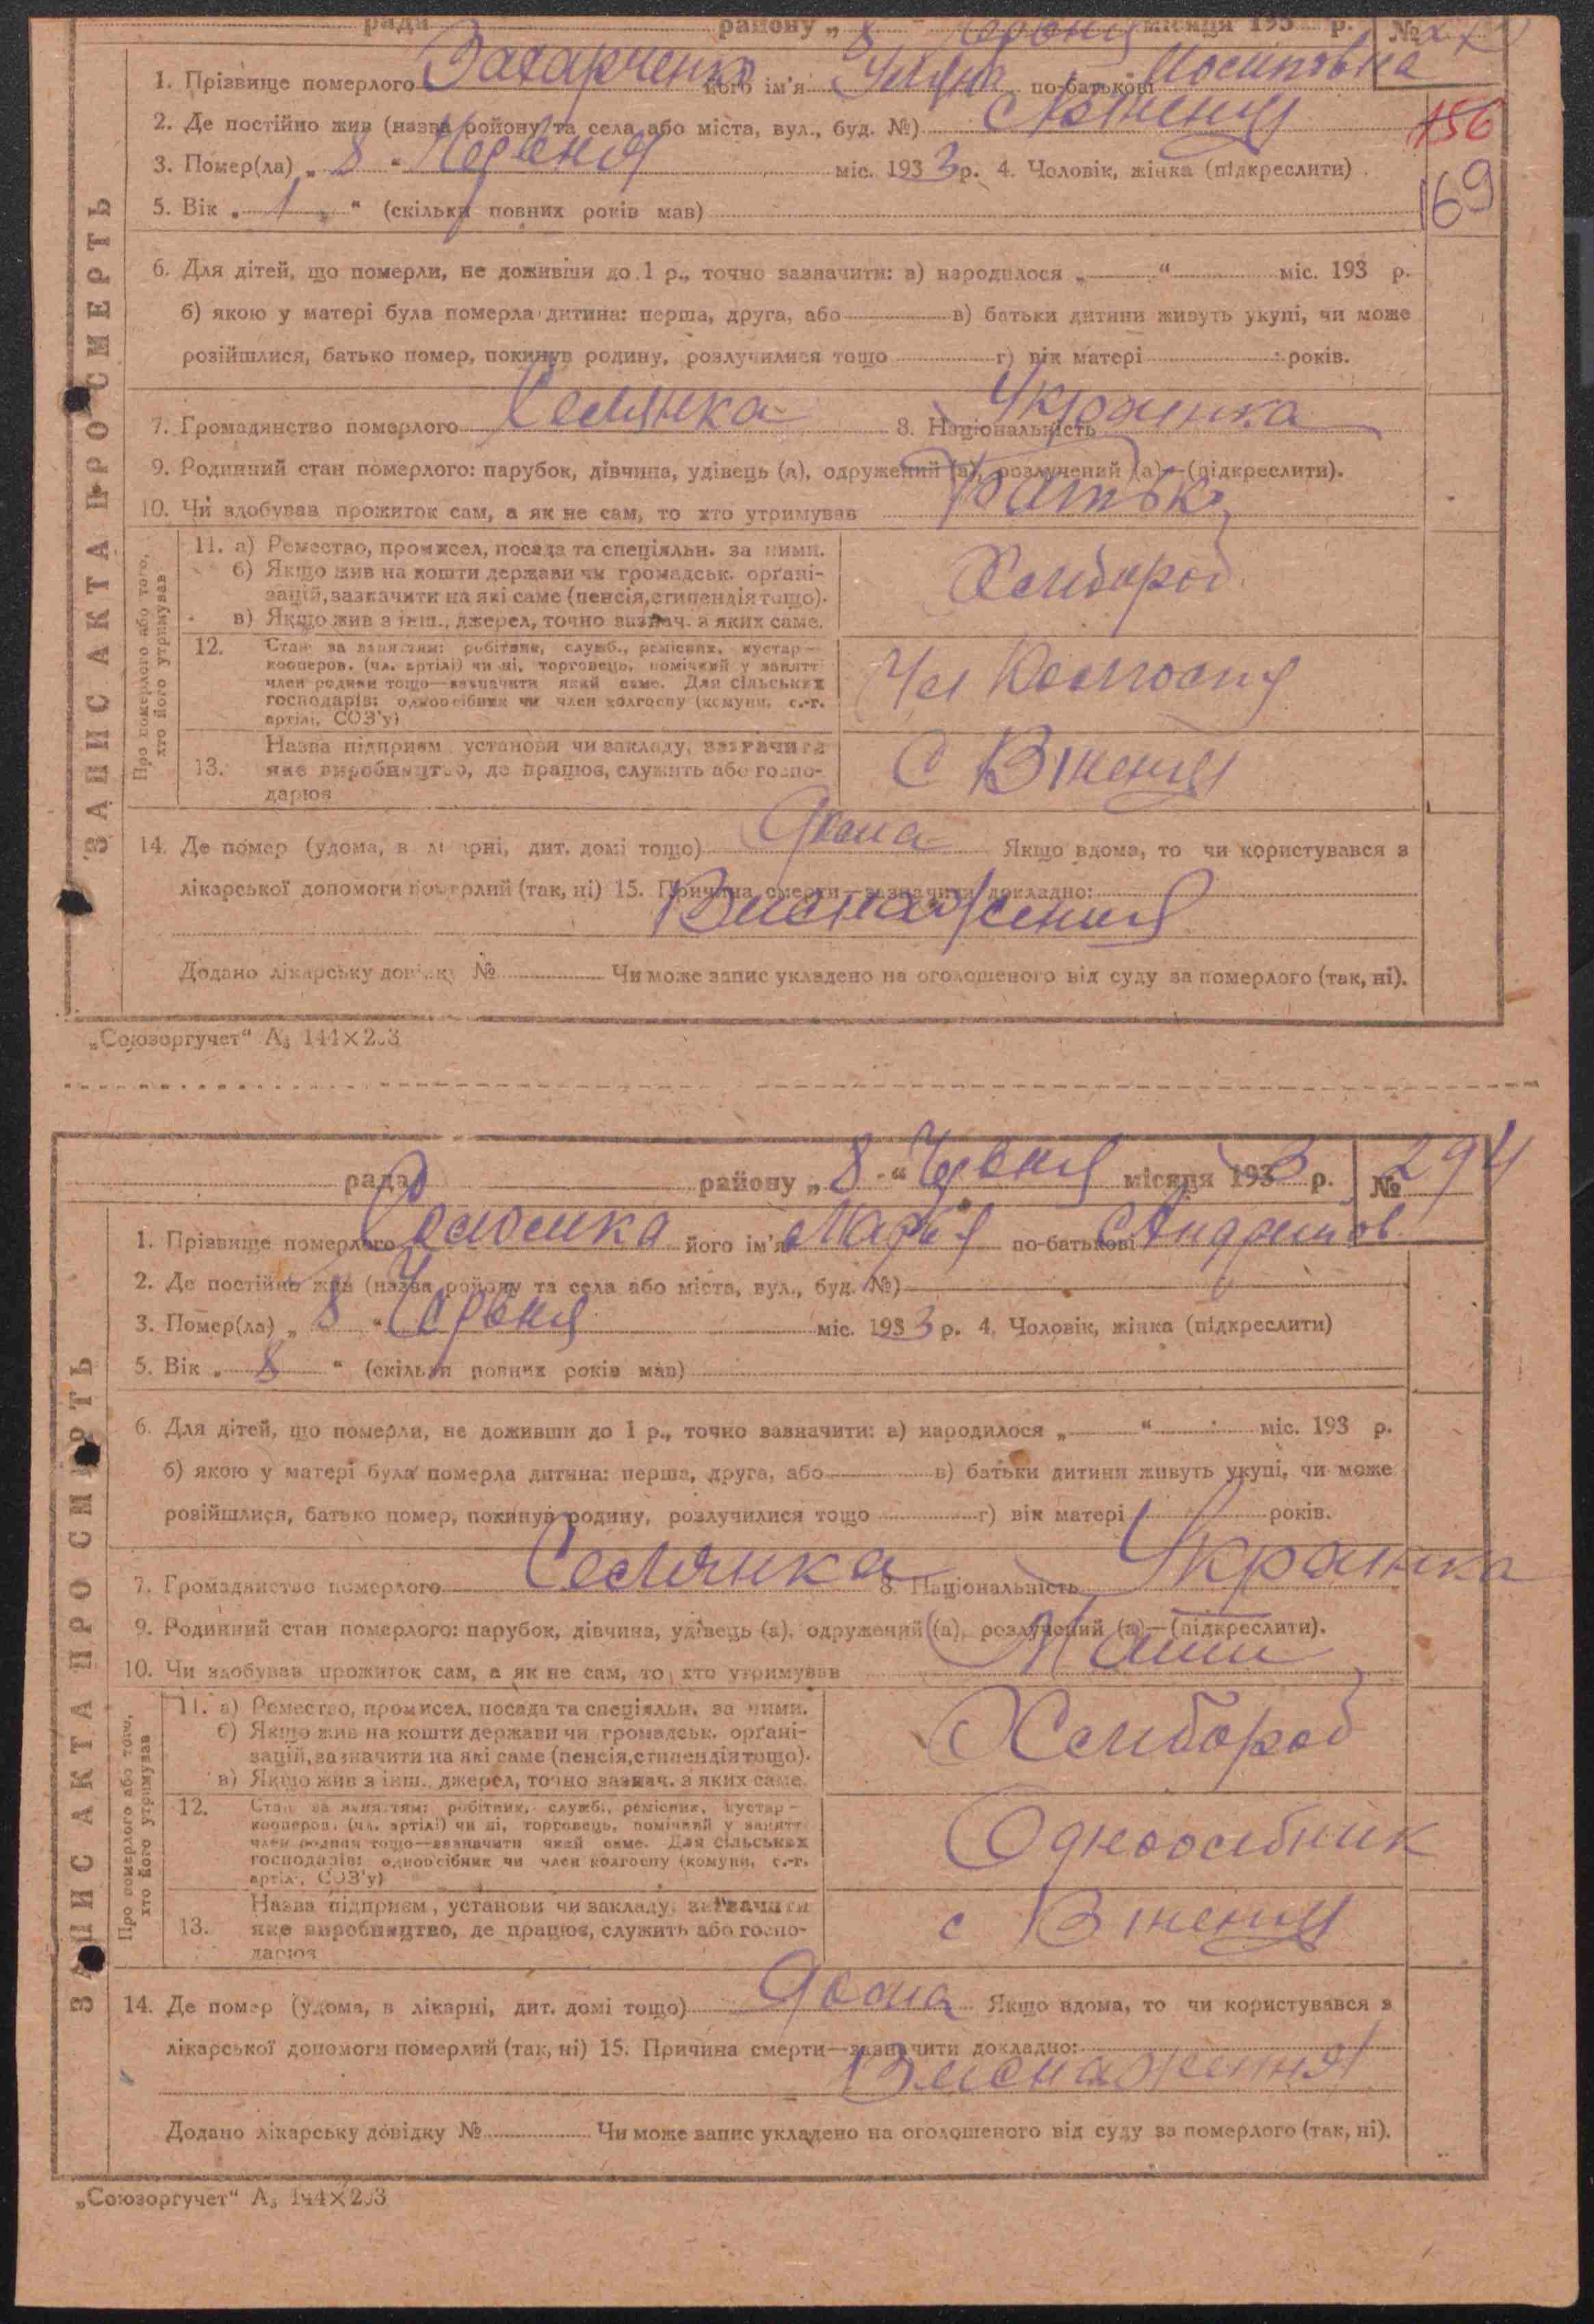 рада району „ 8 " Червня місяця 193 р. №
1. Прізвище померлого Захарченко його ім'я Уляна по-батькові Йосиповна
2. Де постійно жив (назва ройону та села або міста, вул., буд. №) с Вженця
156
3. Помер(ла) „ 8 " Червня міс. 1933 р. 4. Чоловік, жінка (підкреслити)
169
5. Вік „ 1 " (скільки повних років мав)
6. Для дітей, що померли, не доживши до 1 р., точно зазначити: а) народилося „ " міс. 193 р.
б) якою у матері була померла дитина: перша, друга, або в) батьки дитини живуть укупі, чи може
розійшлися, батько помер, покинув родину, розлучилися тощо г) вік матері років.
7. Громадянство померлого Селянка 8. Національність Украинка
9. Родинний стан померлого: парубок, дівчина, удівець (а), одружений (а), розлучений (а)—(підкреслити).
10. Чи здобував прожиток сам, а як не сам, то хто утримував Батько
ЗАПИС АКТА ПРО СМЕРТЬ
Про померлого або того, хто його утримував
11. а) Ремество, промисел, посада та спеціяльн. за ними.
б) Якщо жив на кошти держави чи громадськ. орґані-
зацій, зазначити на які саме (пенсія, стипендія тощо).
в) Якщо жив з інш., джерел, точно зазнач. з яких саме.
Хлибороб
12. Стан за заняттям: робітник, служб., ремісник, кустар—
кооперов. (чл. артілі) чи ні, торговець, помічний у занятт
член родини тощо—зазначити який саме. Для сільських
господарів: одноосібник чи член колгоспу (комуни, с.-г.
артілі, СОЗ'у)
Чл Колгоспу
13. Назва підприєм., установи чи закладу, зазначити
яке виробництво, де працює, служить або госпо-
дарює
с Вженця
14. Де помер (удома, в лікарні, дит. домі тощо) Дома Якщо вдома, то чи користувався з
лікарської допомоги померлий (так, ні) 15. Причина смерти—зазначити докладно:
Виснаження
Додано лікарську довідку № Чи може запис укладено на оголошеного від суду за померлого (так, ні).
„Союзоргучет" А₅ 144×203
рада району „ 8 " Червня місяця 1933 р. № 294
1. Прізвище померлого його ім'я Марія по-батькові Андреитов
2. Де постійно жив (назва ройону та села або міста, вул., буд. №)
3. Помер(ла) „ 8 " Червня міс. 1933 р. 4. Чоловік, жінка (підкреслити)
5. Вік „ 8 " (скільки повних років мав)
6. Для дітей, що померли, не доживши до 1 р., точно зазначити: а) народилося „ " міс. 193 р.
б) якою у матері була померла дитина: перша, друга, або в) батьки дитини живуть укупі, чи може
розійшлися, батько помер, покинув родину, розлучилися тощо г) вік матері років.
7. Громадянство померлого Селянка 8. Національність Украинка
9. Родинний стан померлого: парубок, дівчина, удівець (а), одружений (а), розлучений (а)—(підкреслити).
10. Чи здобував прожиток сам, а як не сам, то хто утримував Мати
ЗАПИС АКТА ПРО СМЕРТЬ
Про померлого або того, хто його утримував
11. а) Ремество, промисел, посада та спеціяльн. за ними.
б) Якщо жив на кошти держави чи громадськ. орґані-
зацій, зазначити на які саме (пенсія, стипендія тощо).
в) Якщо жив з інш., джерел, точно зазнач. з яких саме.
Хлибороб
12. Стан за заняттям: робітник, службі, ремісник, кустар—
кооперов. (чл. артілі) чи ні, торговець, помічний у занятт
член родини тощо—зазначити який саме. Для сільських
господарів: одноосібник чи член колгоспу (комуни, с.-г.
артілі, СОЗ'у)
Одноосебник
13. Назва підприєм., установи чи закладу, зазначити
яке виробництво, де працює, служить або госпо-
дарює
с Вженця
14. Де помер (удома, в лікарні, дит. домі тощо) Дома Якщо вдома, то чи користувався з
лікарської допомоги померлий (так, ні) 15. Причина смерти—зазначити докладно:
Виснаження
Додано лікарську довідку № Чи може запис укладено на оголошеного від суду за померлого (так, ні).
„Союзоргучет" А₅ 144×203